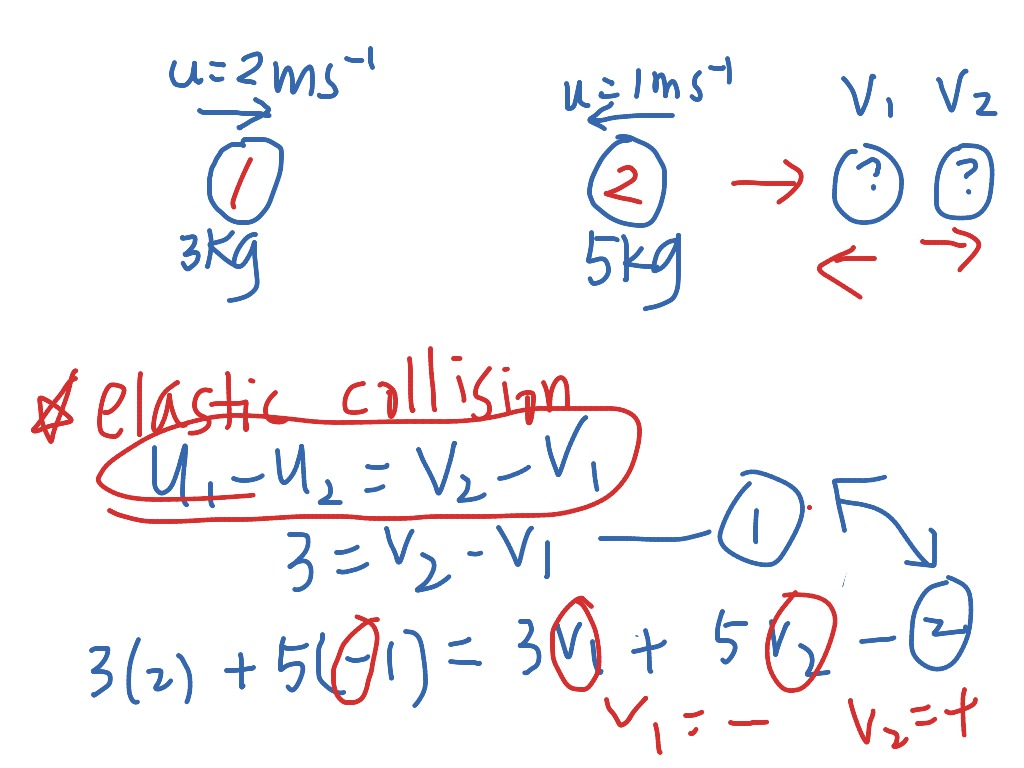 u=2ms⁻¹ u=1ms⁻¹ V₁ V₂
1 2 → ? ?
3kg 5kg
☆ elastic collision
U₁ - U₂ = V₂ - V₁
3 = V₂ - V₁ — ①
3(2) + 5(-1) = 3V₁ + 5V₂ — ②
V₁ = - V₂ = +